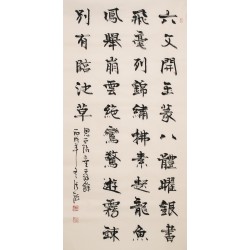 六文開玉篆八體曜銀書
飛毫列錦繡拂素起龍魚
鳳舉崩雲絕鸞驚遊霧疎
別有臨池草
恩沾垂露餘